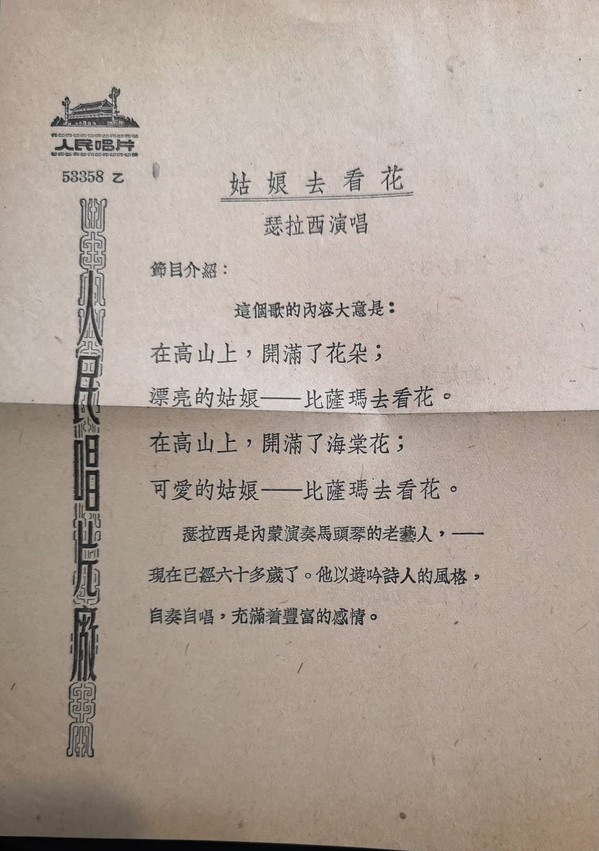 人民唱片
53358 乙
人民唱片廠
姑娘去看花
瑟拉西演唱
節目介紹：
這個歌的內容大意是：
在高山上，開滿了花朵；
漂亮的姑娘——比薩瑪去看花。
在高山上，開滿了海棠花；
可愛的姑娘——比薩瑪去看花。
瑟拉西是內蒙演奏馬頭琴的老藝人，——
現在已經六十多歲了。他以遊吟詩人的風格，
自奏自唱，充滿着豐富的感情。